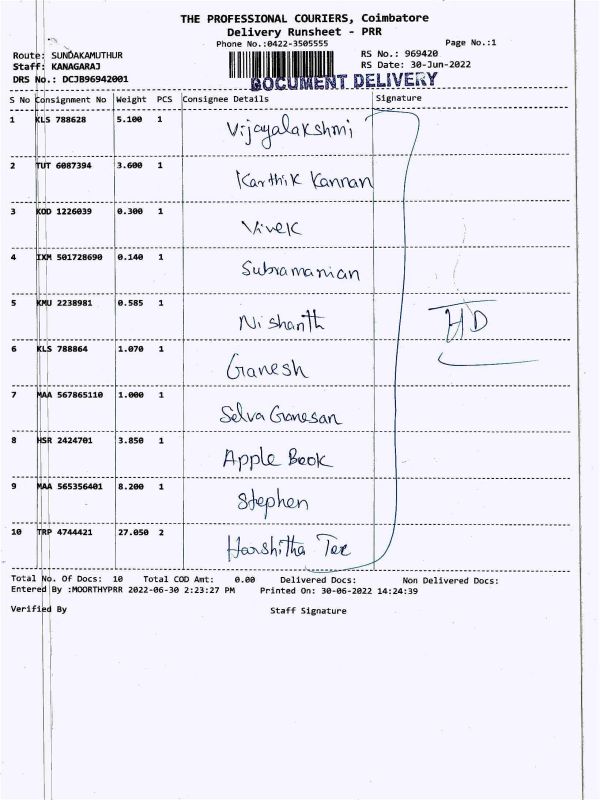 THE PROFESSIONAL COURIERS, Coimbatore
Delivery Runsheet - PRR
Phone No.:0422-3505555 Page No.:1
Route: SUNDAKAMUTHUR RS No.: 969420
Staff: KANAGARAJ RS Date: 30-Jun-2022
DRS No.: DCJB96942001 DOCUMENT DELIVERY
S No Consignment No Weight PCS Consignee Details Signature
1 KLS 788628 5.100 1 Vijayalakshmi
2 TUT 6087394 3.600 1 Karthik Kannan
3 KOD 1226039 0.300 1 Vivek
4 IXM 501728690 0.140 1 Subramanian
5 KMU 2238981 0.585 1 Nishanth HD
6 KLS 788864 1.070 1 Ganesh
7 MAA 567865110 1.000 1 Selva Ganesan
8 HSR 2424701 3.850 1 Apple Book
9 MAA 565356401 8.200 1 Stephen
10 TRP 4744421 27.050 2 Harshitha Tex
Total No. Of Docs: 10 Total COD Amt: 0.00 Delivered Docs: Non Delivered Docs:
Entered By :MOORTHYPRR 2022-06-30 2:23:27 PM Printed On: 30-06-2022 14:24:39
Verified By Staff Signature